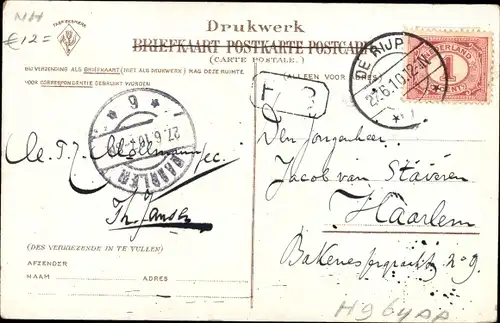 NH
€12=
FABRIEKSMERK
Drukwerk
BRIEFKAART POSTKARTE POSTCARD
(CARTE POSTALE.)
BIJ VERZENDING ALS BRIEFKAART (NIET ALS DRUKWERK) MAG DEZE RUIMTE
VOOR CORRESPONDENTIE GEBRUIKT WORDEN
(ALLEEN VOOR ADRES)
DE RIJP
27.6.10.12-1N
NEDERLAND
1
CENT
T
HAARLEM
27.6.10.
6
Den Jongenheer
Jacob van Staveren
Haarlem
Bakenessergracht no 9.
Th. Jansen
(DES VERKIEZENDE IN TE VULLEN)
AFZENDER
NAAM ADRES